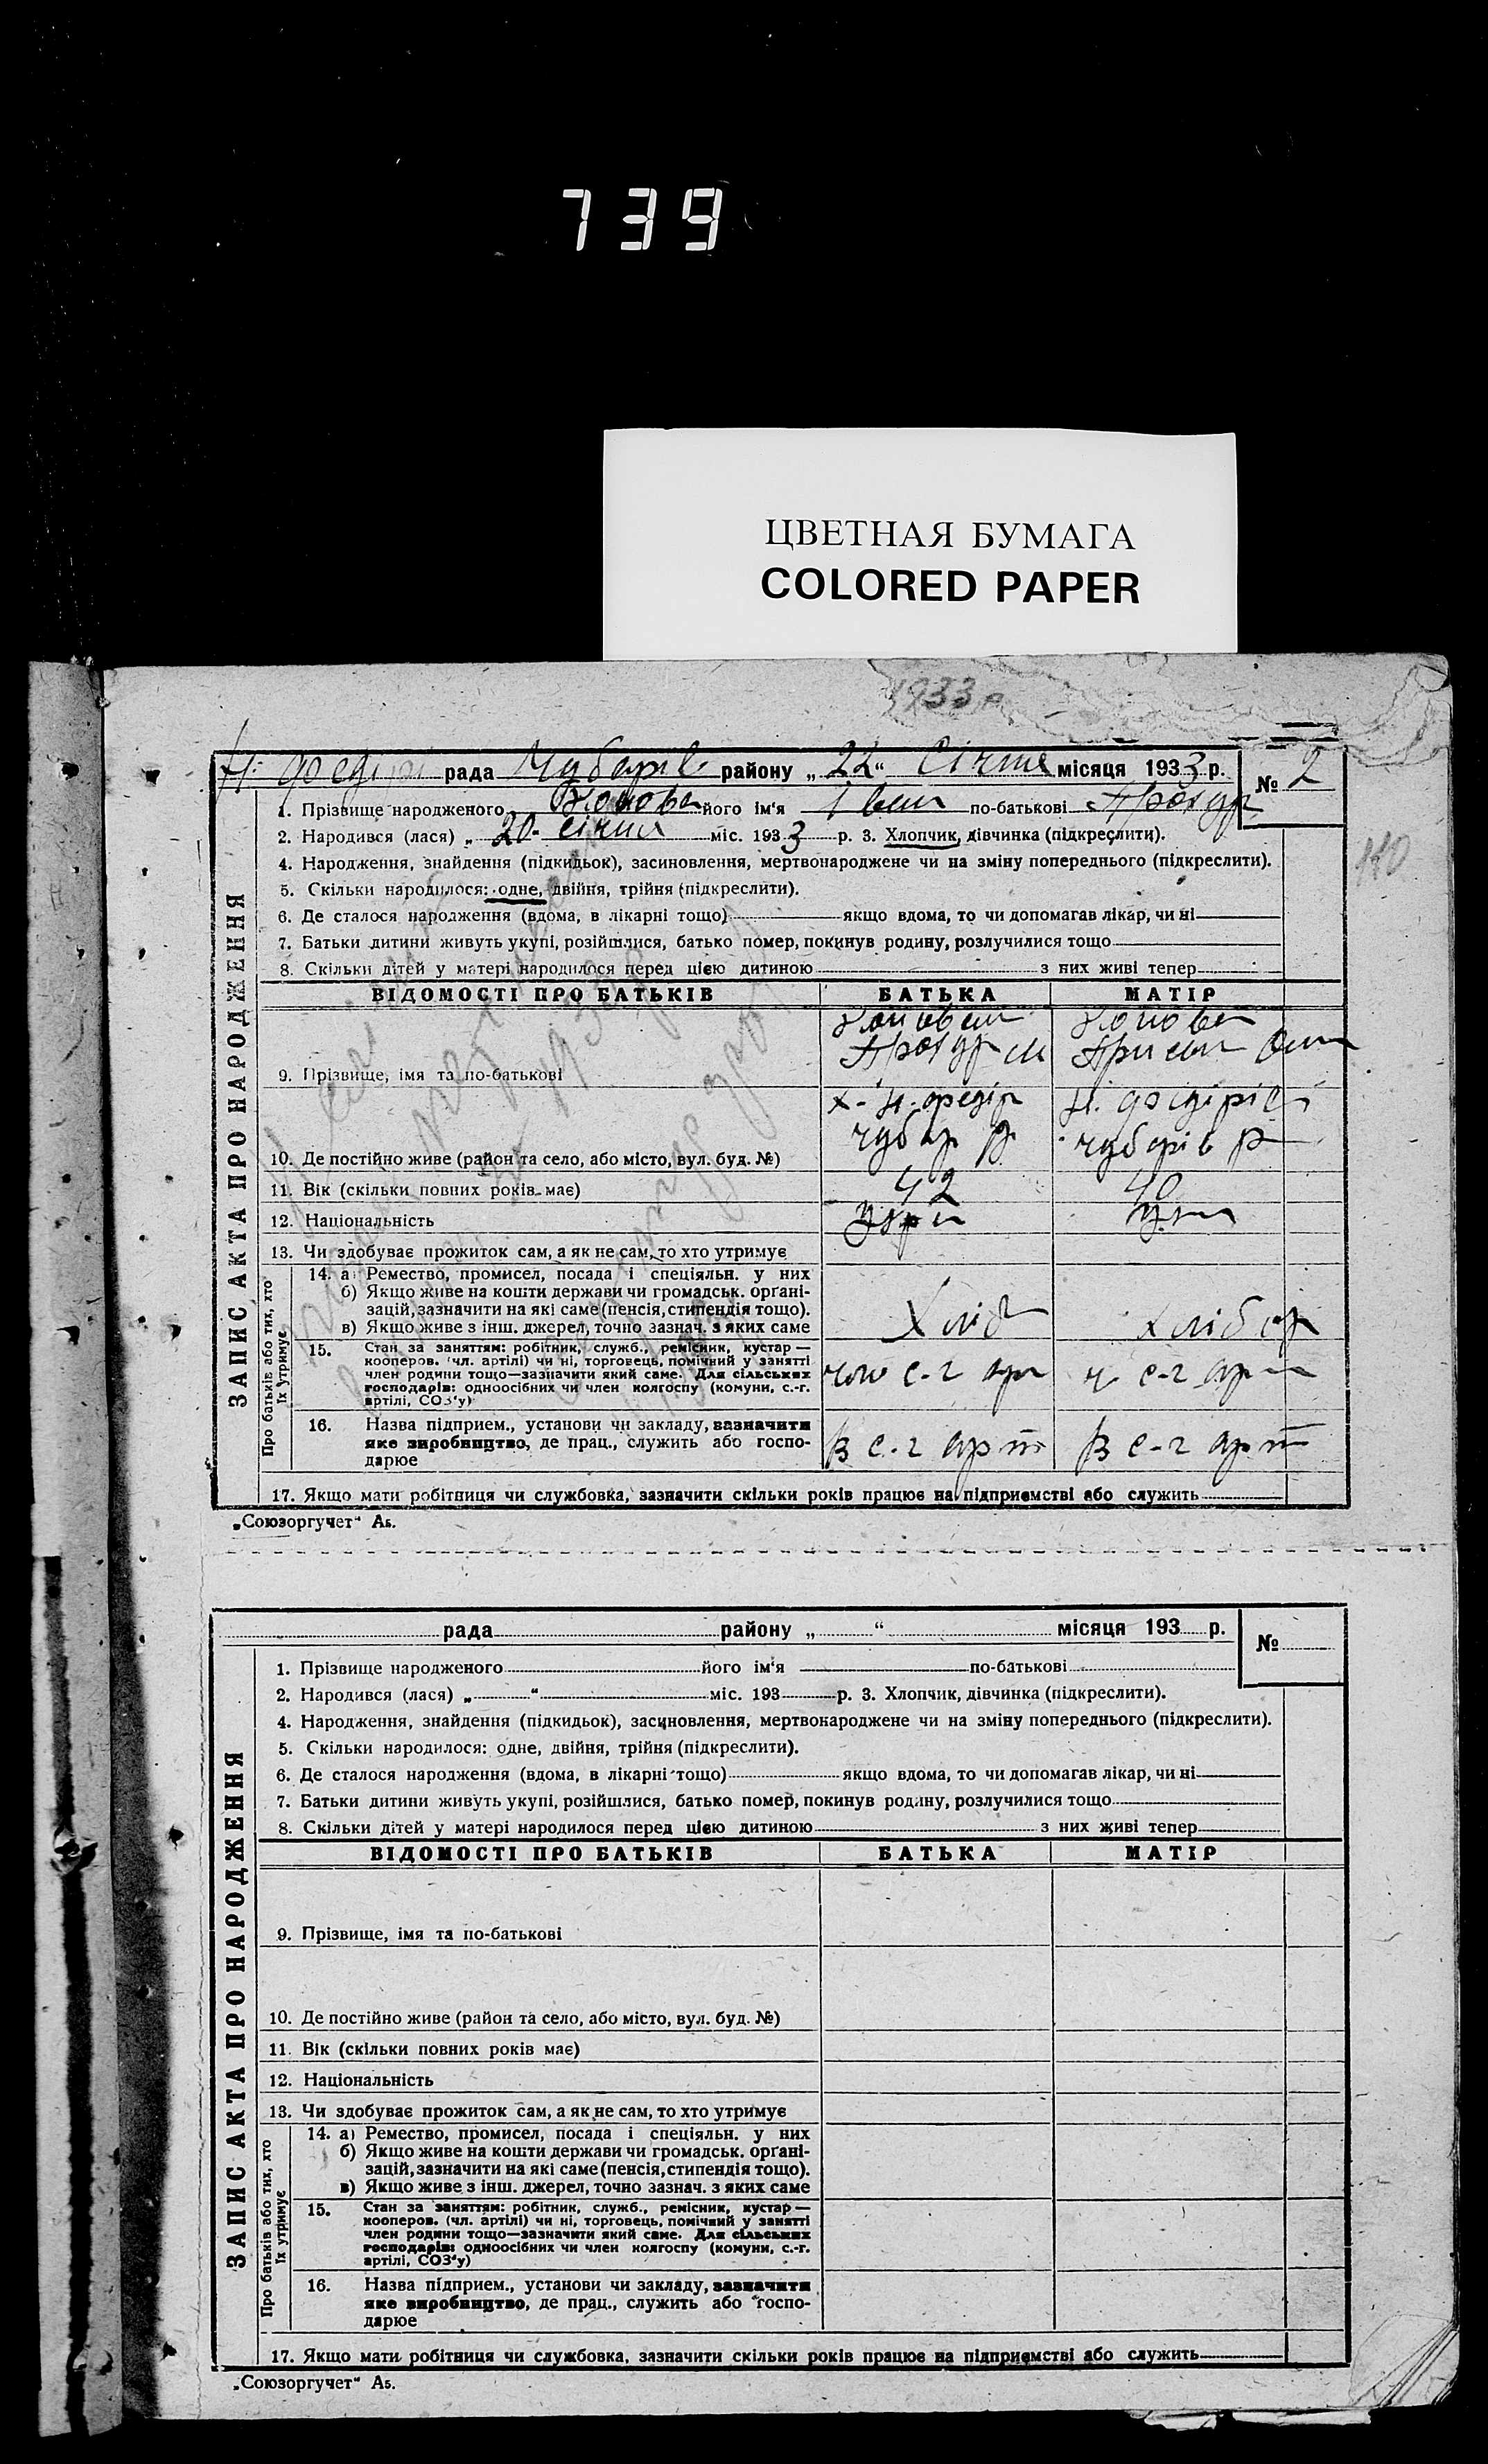 739
ЦВЕТНАЯ БУМАГА
COLORED PAPER
1933 р
рада Чубарів району „22“ Січня місяця 1933 р. № 2
1. Прізвище народженого його ім‘я Іван по-батькові
2. Народився (лася) „ 20 - січня міс. 1933 р. 3. Хлопчик, дівчинка (підкреслити).
4. Народження, знайдення (підкидьок), засиновлення, мертвонароджене чи на зміну попереднього (підкреслити).
110
5. Скільки народилося: одне, двійня, трійня (підкреслити).
6. Де сталося народження (вдома, в лікарні тощо) якщо вдома, то чи допомагав лікар, чи ні
7. Батьки дитини живуть укупі, розійшлися, батько помер, покинув родину, розлучилися тощо
8. Скільки дітей у матері народилося перед цією дитиною з них живі тепер
ЗАПИС АКТА ПРО НАРОДЖЕННЯ
ВІДОМОСТІ ПРО БАТЬКІВ БАТЬКА МАТІР
9. Прізвище, імя та по-батькові
10. Де постійно живе (район та село, або місто, вул. буд. №) чубар р. чубарів р
11. Вік (скільки повних років має) 42 40
12. Національність
13. Чи здобуває прожиток сам, а як не сам, то хто утримує
Про батьків або тих, хто їх утримує
14. а) Ремество, промисел, посада і спеціяльн. у них
б) Якщо живе на кошти держави чи громадськ. орґані-
зацій, зазначити на які саме (пенсія, стипендія тощо).
в) Якщо живе з інш. джерел, точно зазнач. з яких саме Хліб хлібор
15. Стан за заняттям: робітник, служб., ремісник, кустар —
кооперов. (чл. артілі) чи ні, торговець, помічний у занятті
член родини тощо—зазначити який саме. Для сільських
господарів: одноосібних чи член колгоспу (комуни, с.-г.
артілі, СОЗ‘у)
член с-г арт ч. с-г арт
16. Назва підприєм., установи чи закладу, зазначити
яке виробництво, де прац., служить або госпо-
дарює
в с-г арт в с-г арт
17. Якщо мати робітниця чи службовка, зазначити скільки років працює на підприємстві або служить
„Союзоргучет“ Аб.
рада району „ “ місяця 193 р. №
1. Прізвище народженого його ім‘я по-батькові
2. Народився (лася) „ “ міс. 193 р. 3. Хлопчик, дівчинка (підкреслити).
4. Народження, знайдення (підкидьок), засиновлення, мертвонароджене чи на зміну попереднього (підкреслити).
5. Скільки народилося: одне, двійня, трійня (підкреслити).
6. Де сталося народження (вдома, в лікарні тощо) якщо вдома, то чи допомагав лікар, чи ні
7. Батьки дитини живуть укупі, розійшлися, батько помер, покинув родину, розлучилися тощо
8. Скільки дітей у матері народилося перед цією дитиною з них живі тепер
ЗАПИС АКТА ПРО НАРОДЖЕННЯ
ВІДОМОСТІ ПРО БАТЬКІВ БАТЬКА МАТІР
9. Прізвище, імя та по-батькові
10. Де постійно живе (район та село, або місто, вул. буд. №)
11. Вік (скільки повних років має)
12. Національність
13. Чи здобуває прожиток сам, а як не сам, то хто утримує
Про батьків або тих, хто їх утримує
14. а) Ремество, промисел, посада і спеціяльн. у них
б) Якщо живе на кошти держави чи громадськ. орґані-
зацій, зазначити на які саме (пенсія, стипендія тощо).
в) Якщо живе з інш. джерел, точно зазнач. з яких саме
15. Стан за заняттям: робітник, служб., ремісник, кустар —
кооперов. (чл. артілі) чи ні, торговець, помічний у занятті
член родини тощо—зазначити який саме. Для сільських
господарів: одноосібних чи член колгоспу (комуни, с.-г.
артілі, СОЗ‘у)
16. Назва підприєм., установи чи закладу, зазначити
яке виробництво, де прац., служить або госпо-
дарює
17. Якщо мати робітниця чи службовка, зазначити скільки років працює на підприємстві або служить
„Союзоргучет“ Аб.